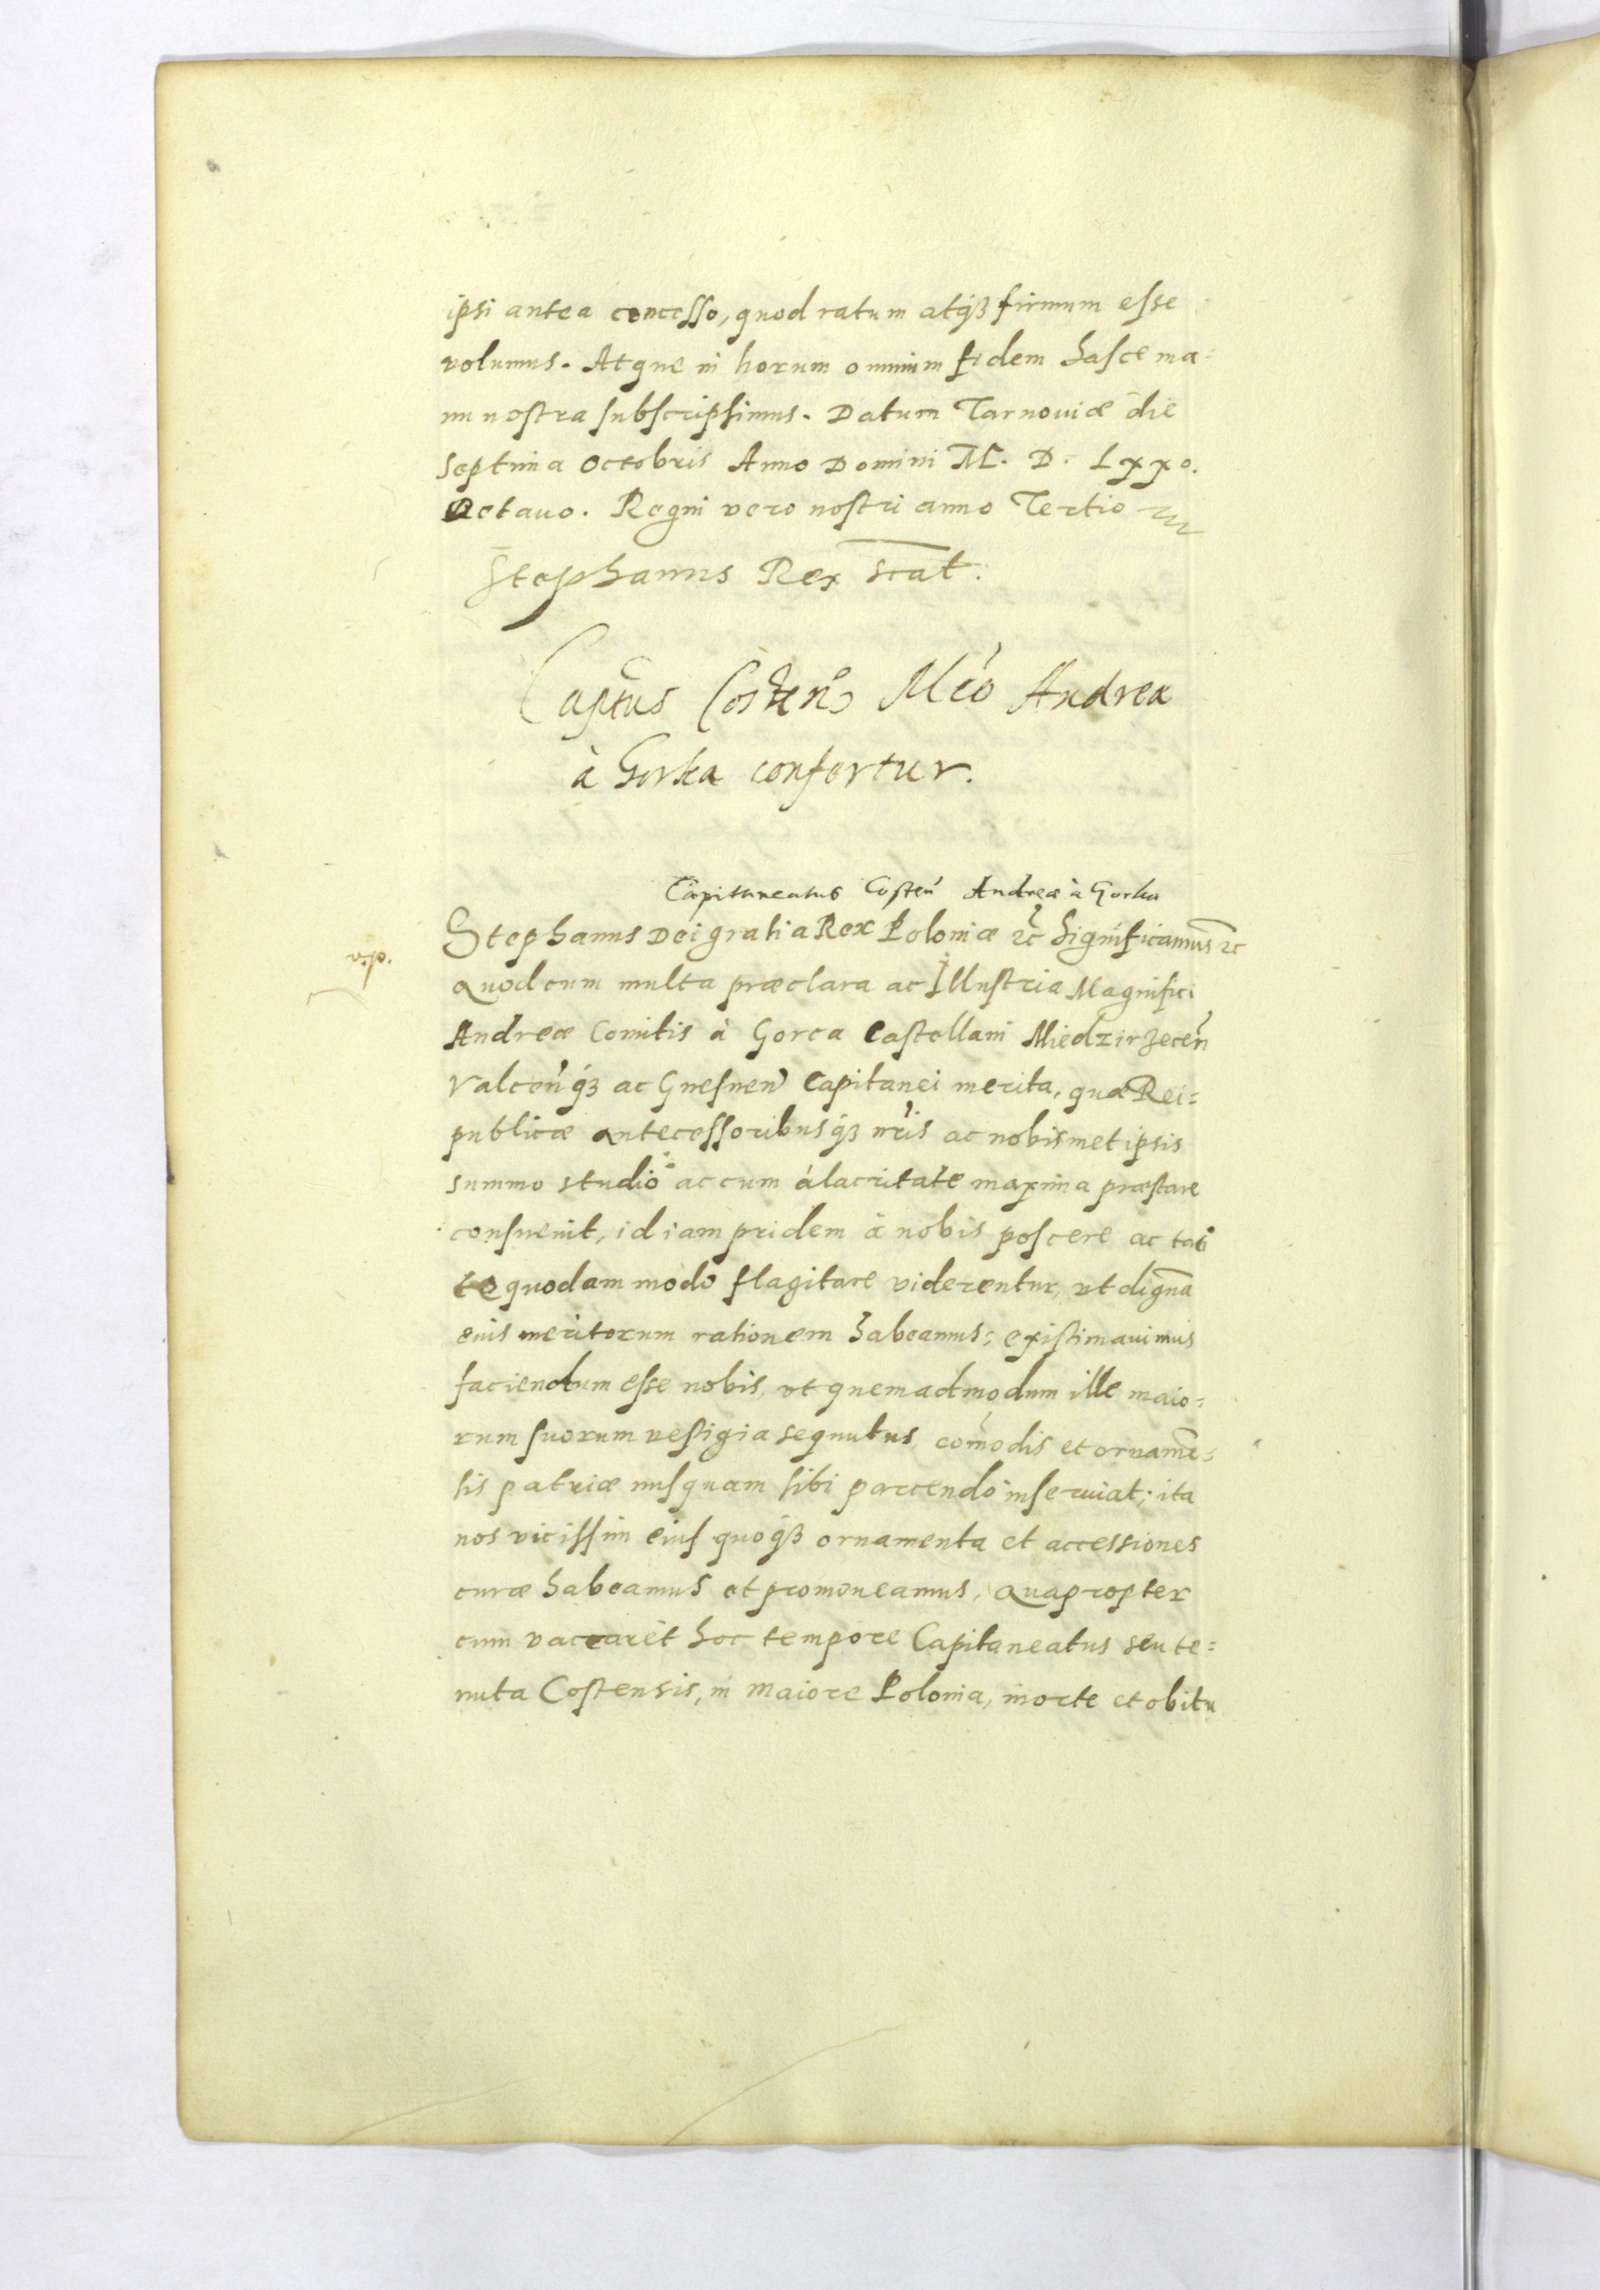 ipsi antea concesso, quod ratum atq́ꝫ firmum esse
volumus. Atque in horum omnium fidem hasce ma-
nu nostra subscripsimus. Datum Tarnoviæ die
septima Octobris Anno Domini M. D. Lxxo.
Octauo. Regni vero nostri anno Tertio
Stephanus Rex scat.
Captus Costen̄ Mco Andrea
à Gorka confertur.
Capitaneatus Costen̄ Andreæ à Gorka
Stephanus Dei gratia Rex Poloniæ ꝛc̃ Significamus ꝛc
Quod cum multa præclara ac Illustria Magnifici
Andreæ Comitis à Gorca Castellani Miedzirzecen̄
Valcen̄q́ꝫ ac Gnesnen̄ Capitanei merita, quæ Rei-
publicæ antecessoribusq́ꝫ nr̄is ac nobismet ipsis
summo studio ac cum alacritate maxima præstare
consueuit, id iam pridem à nobis poscere ac taci
te quodam modo flagitare viderentur, vt dignā
eius meritorum rationem habeamus: existimauimus
faciendum esse nobis, vt quemadmodum ille maio-
rum suorum vestigia sequutus com̄odis et ornamē-
tis patriæ nusquam sibi parcendo inseruiat; ita
nos vicissim eius quoq́ꝫ ornamenta et accessiones
curæ habeamus et promoueamus. Quapropter
cum vaccaret hoc tempore Capitaneatus seu te-
nuta Costensis, in maiore Polonia, morte et obitu